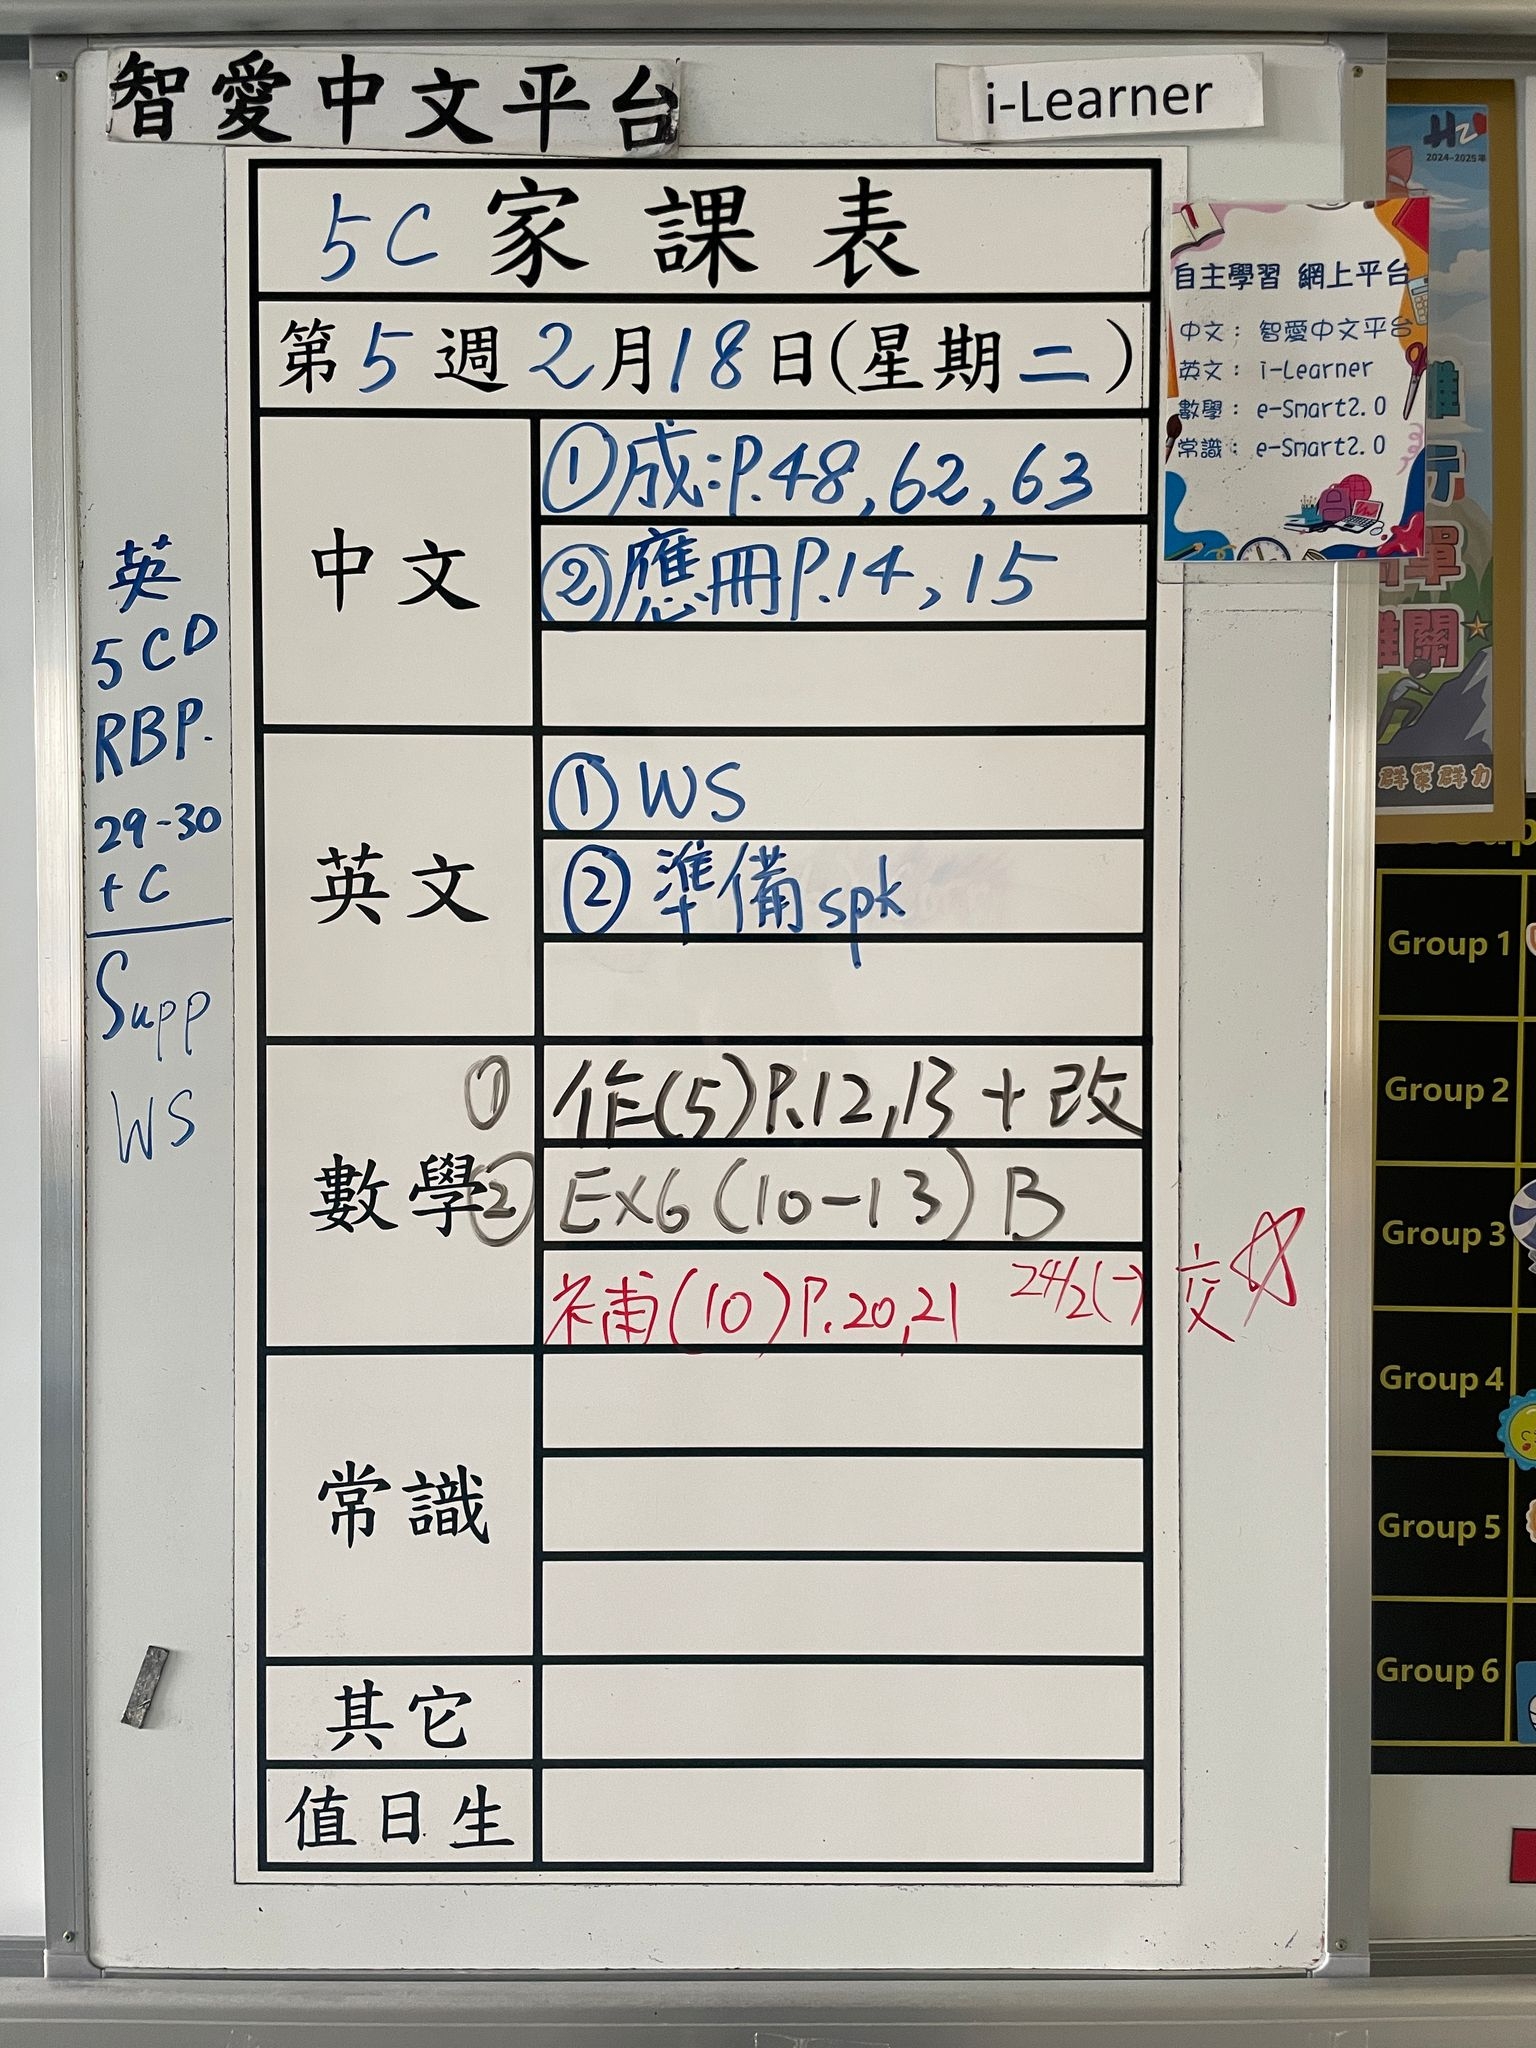 智愛中文平台
i-Learner
5C 家課表
第5週2月18日(星期二)
中文
①成:P.48,62,63
②應冊P.14,15
英文
①WS
②準備spk
數學
① 作(5)P.12,13+改
② EX6(10-13)B
補(10)P.20,21 24/2(一)交
常識
其它
值日生
英
5CD
RBP.
29-30
+C
Supp
WS
自主學習 網上平台
中文：智愛中文平台
英文：i-Learner
數學：e-Smart2.0
常識：e-Smart2.0
2024-2025年
群策群力
Group 1
Group 2
Group 3
Group 4
Group 5
Group 6